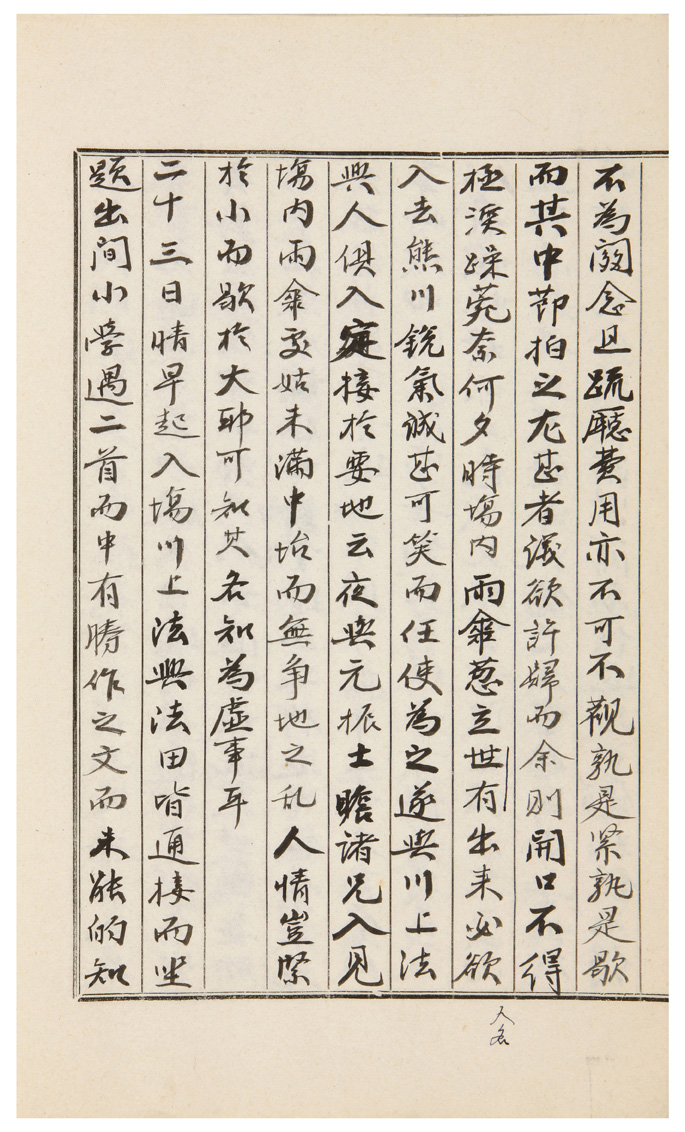 不為闕念且疏廳費用亦不可不観孰是緊孰是歇
而其中節拍之尤甚者議欲許歸而余則開口不得
極渼躁菀奈何夕時塲内雨傘葱立世有出来必欲
入去熊川銳氣誠甚可笑而任使為之遂與川上法
興人俱入窺接於要地云夜與元振士瞻諸兄入見
塲内雨傘處姑未滿中坮而無争地之乱人情豈緊
於小而歇於大耶可知其名知為虛事耳
二十三日晴早起入塲川上法興法田皆通接而坐
題出間小學遇二首而中有勝作之文而未能的知
人名